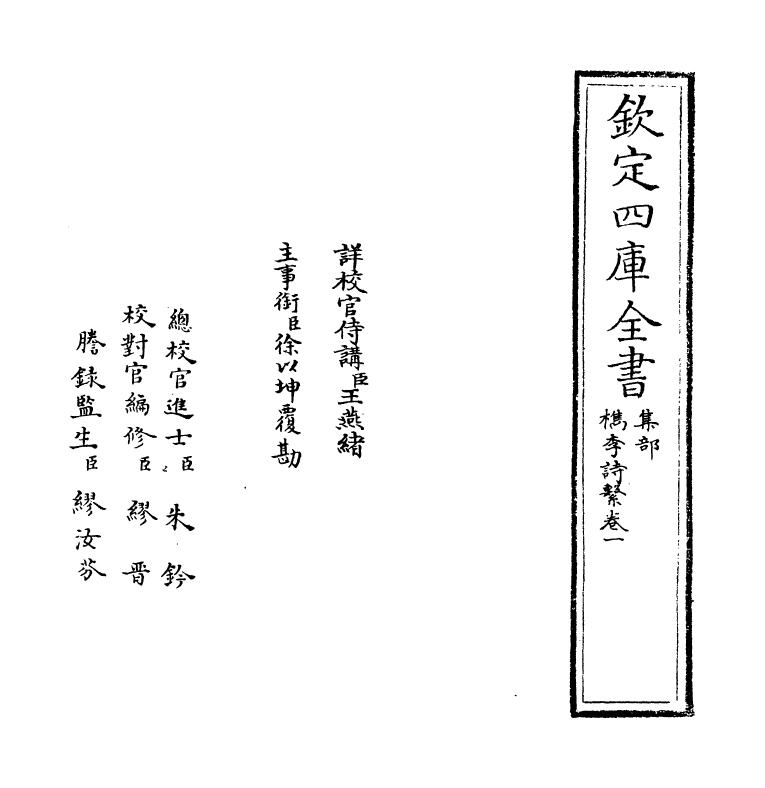 欽定四庫全書
集部
檇李詩繫卷一
詳校官侍講臣王燕緒
主事銜臣徐以坤覆勘
總校官進士臣朱鈐
校對官編修臣繆晉
謄錄監生臣繆汝芬